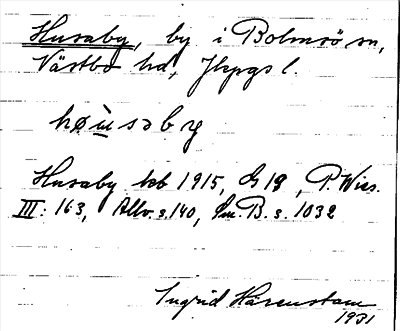 Husaby, by i Bolmsö sn,
Västbo hd, Jkpgs l.
Husaby kb 1915, G 18, P. Wies.
III: 163, Allv. s. 140, Sm. B. s. 1032
Ingrid Härenstam
1931